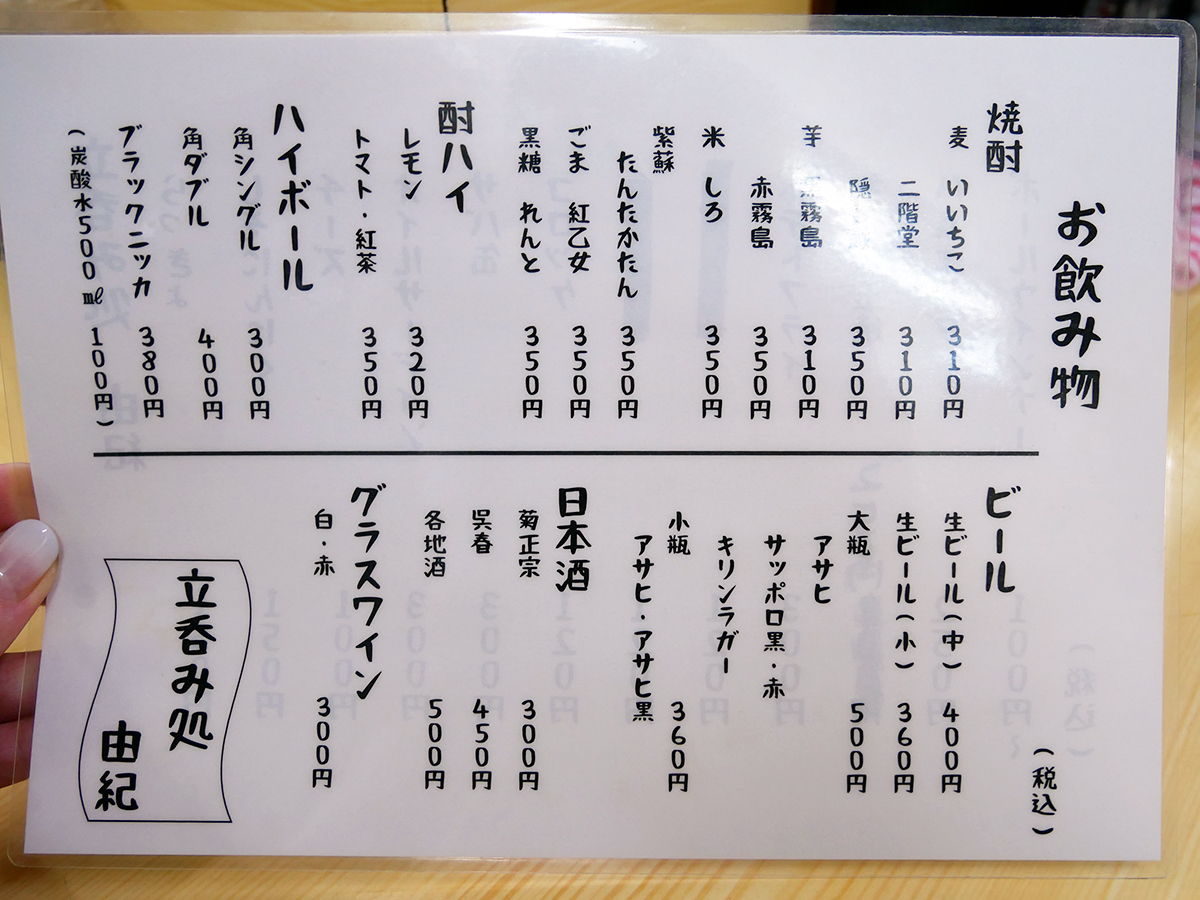 お飲み物
焼酎
麦 いいちこ 310円
二階堂 310円
隠し 350円
芋 黒霧島 310円
赤霧島 350円
米 しろ 350円
紫蘇
たんたかたん 350円
ごま 紅乙女 350円
黒糖 れんと 350円
酎ハイ
レモン 320円
トマト・紅茶 350円
ハイボール
角シングル 300円
角ダブル 400円
ブラックニッカ 380円
(炭酸水500㎖ 100円)
(税込)
ビール
生ビール(中) 400円
生ビール(小) 360円
大瓶 500円
アサヒ
サッポロ黒・赤
キリンラガー
小瓶 360円
アサヒ・アサヒ黒
日本酒
菊正宗 300円
呉春 450円
各地酒 500円
グラスワイン
白・赤 300円
立呑み処
由紀